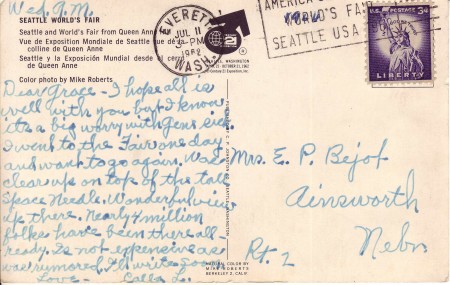 Wed. P.M.
SEATTLE WORLD'S FAIR
Seattle and World's Fair from Queen Anne
Vue de Exposition Mondiale de Seattle vue de
colline de Queen Anne
Seattle y la Exposición Mondial desde el cerro
de Queen Anne
Color photo by Mike Roberts
EVERETT
JUL 11
PM
1962
WASH.
AMERICA
WORLD'S FAIR
SEATTLE USA
U.S. POSTAGE
3¢
LIBERTY
Dear Grace - I hope all is
well with you but I know
it's a big worry with Gens. sic
I went to the Fair one day
and want to go again. Was
clear up on top of the tall
Space Needle. Wonderful view
up there. Nearly 4 million
folks have been there all-
ready. Is not expensive as
was rumored. I'll write soon
Love - Calla L.
Mrs. E. P. Bejot
Ainsworth
Rt. 2
Nebr
NATURAL COLOR BY
MIKE ROBERTS
BERKELEY 2, CALIF.